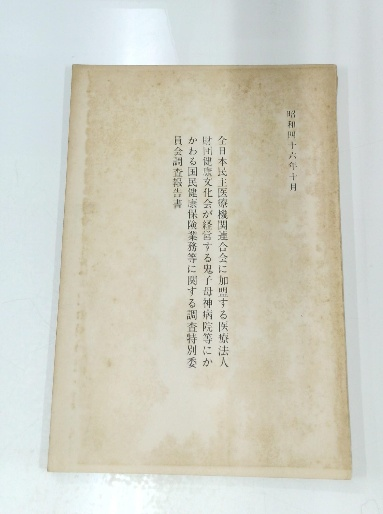 昭和四十六年十月
全日本民主医療機関連合会に加盟する医療法人
財団健康文化会が経営する鬼子母神病院等にか
かわる国民健康保険業務等に関する調査特別委
員会調査報告書